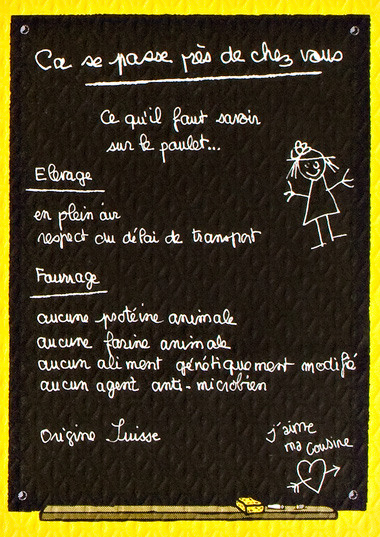 Ca se passe près de chez vous
Ce qu'il faut savoir
sur le poulet...
Elevage
en plein air
respect du délai de transport
Fourrage
aucune protéine animale
aucune farine animale
aucun aliment génétiquement modifié
aucun agent anti-microbien
Origine Suisse
j'aime
ma cousine